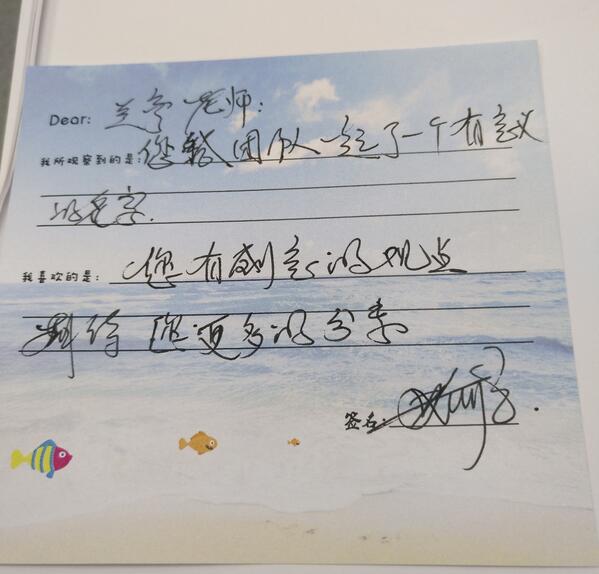 Dear: 兰亭老师:
我所观察到的是: 您 团队 起了一个有意义
的名字.
我喜欢的是: 您有创意的观点
期待您更多的分享
签名: